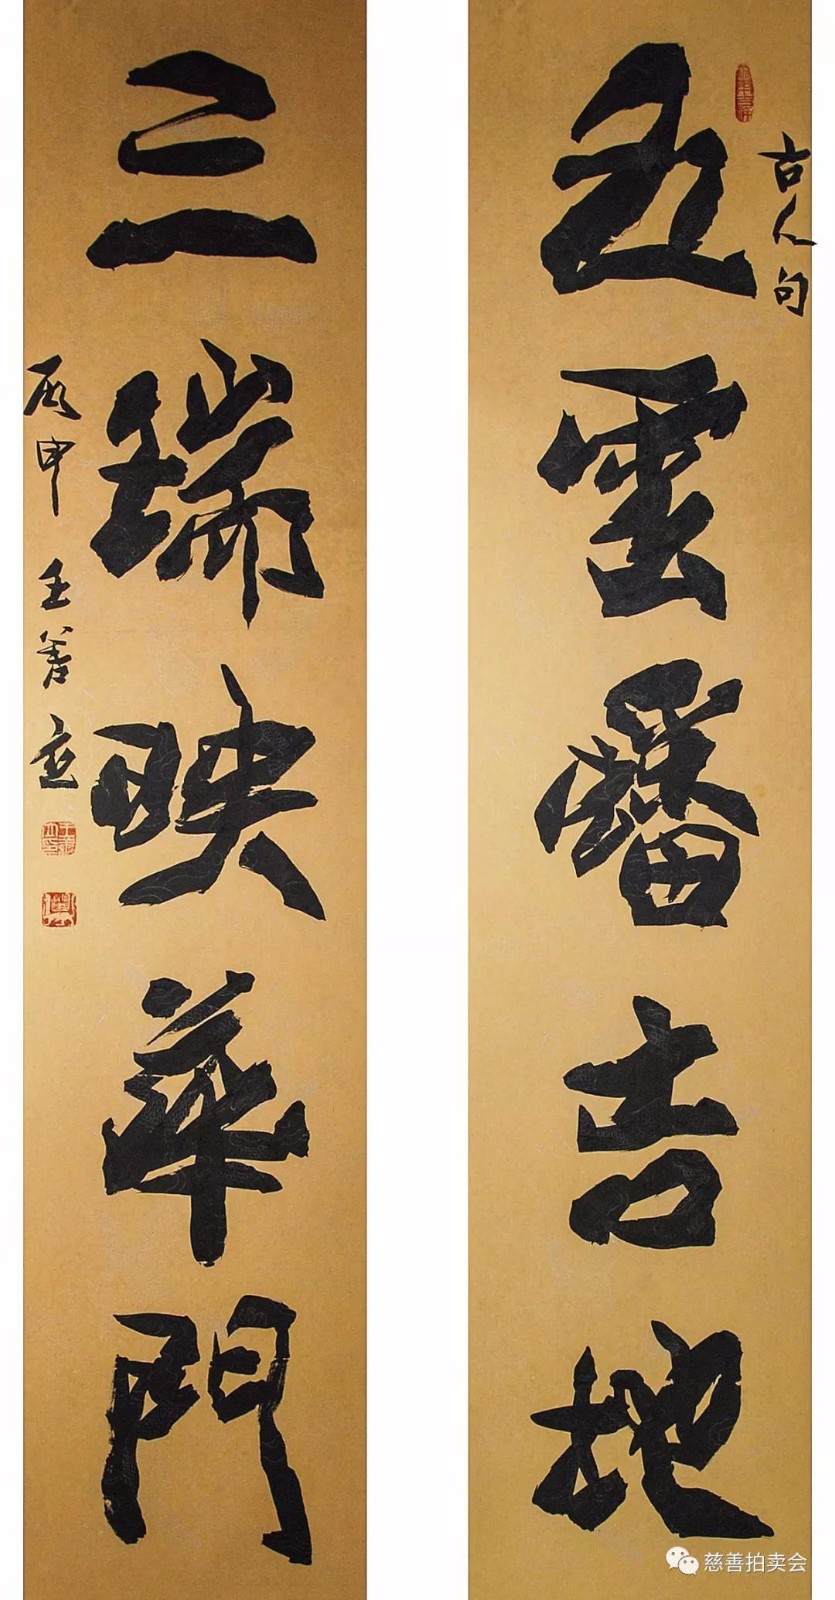 古人句
五雲蟠吉地
三瑞映華門
丙申 王善
慈善拍卖会